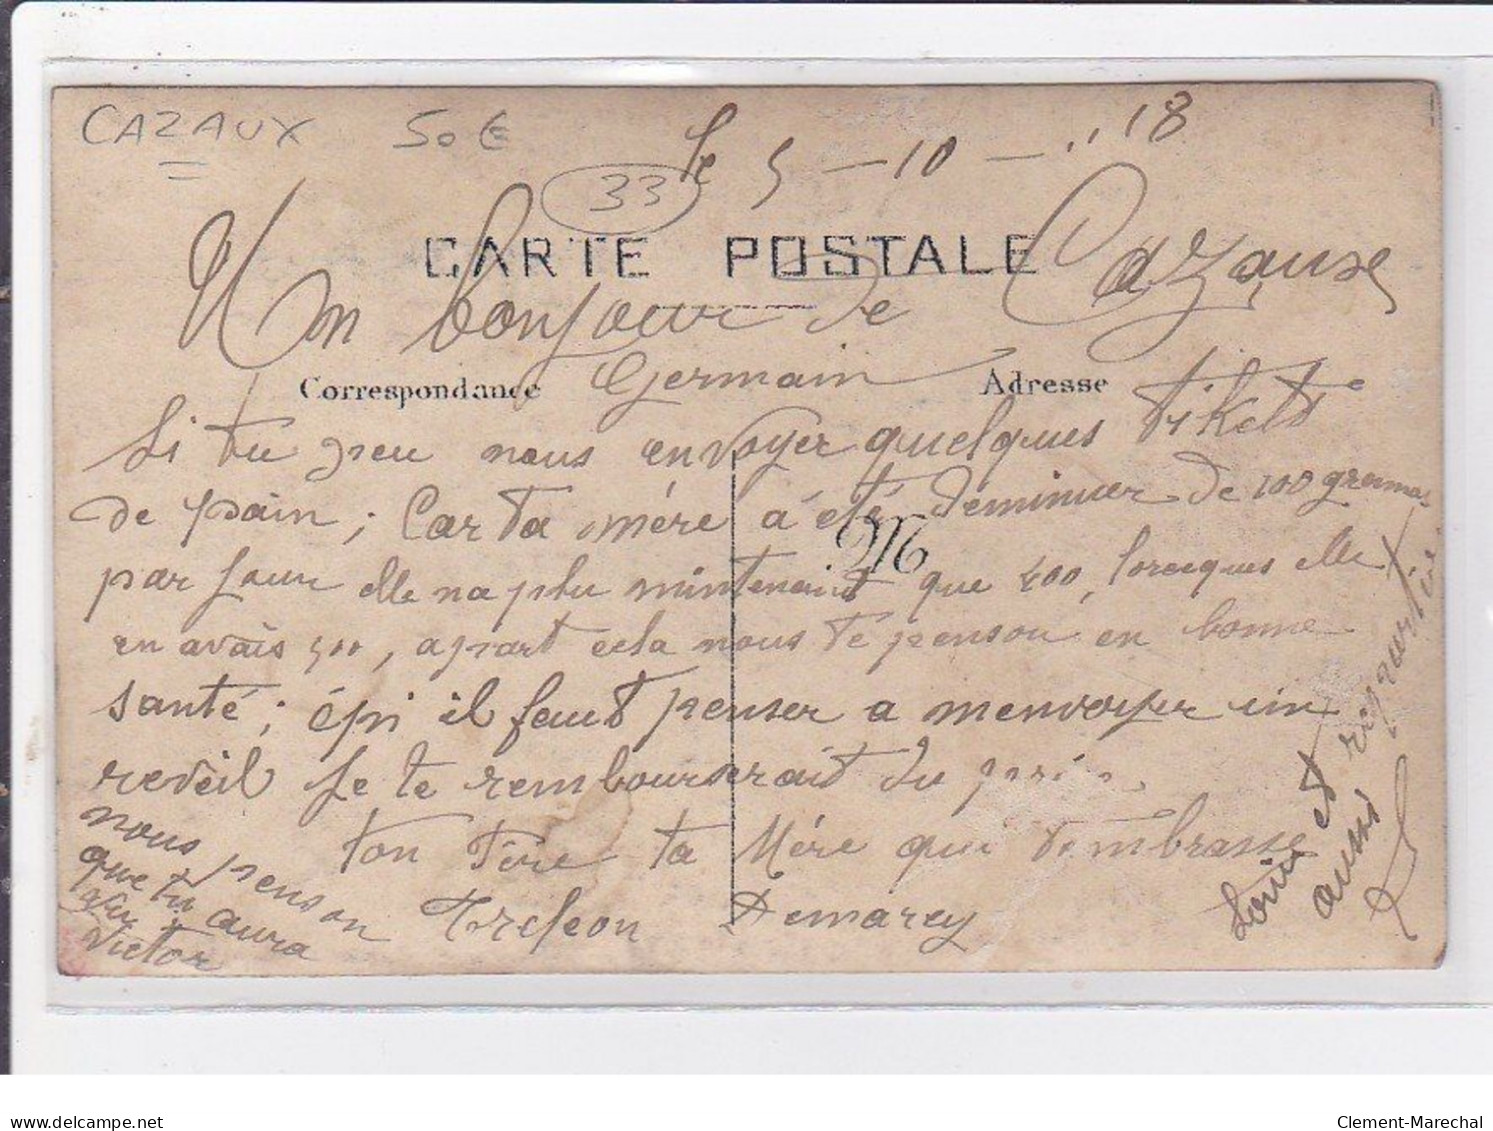 CAZAUX 50€
33
le 5-10-"18
CARTE POSTALE
Un bonjour de Cazaux
Germain
Correspondance
Adresse
Si tu peu nous envoyer quelques tikets
de pain; Car ta mére a été deminuer de 100 grammes
par jour elle na plu mintenant que 400, lorceques elle
en avais 500, apart cela nous te penson en bonne
santé; épi il faut penser a menvoyer un
revéil je te rembourserait du prix.
ton Père ta Mére qui tembrasse
Demarey
nous penson
que tu aura
vu
Victor
Louis et
reparti
aussi
M
delcampe.net
Clement-Marechal